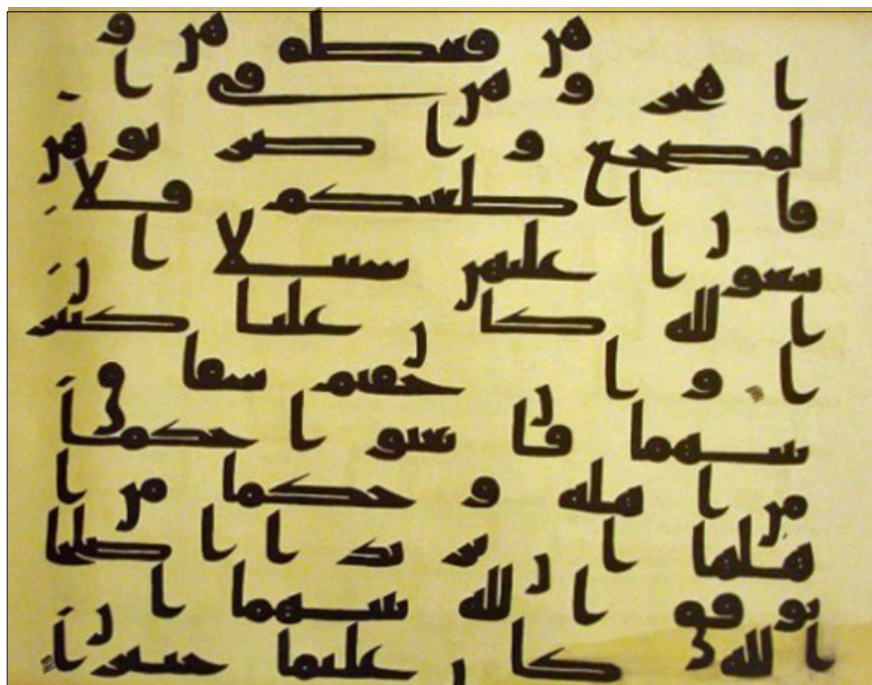 هن فعظوهن و
اهجروهن في ا
لمضجع واضربوهن
فإن اطعنكم فلا
تبغوا عليهن سبيلا ان
الله كان عليا كبير
ا وان خفتم شقاق
بينهما فابعثوا حكما
من اهله وحكما من ا
هلها ان يريدا اصلحا
يوفق الله بينهما ان
الله كان عليما خبيرا